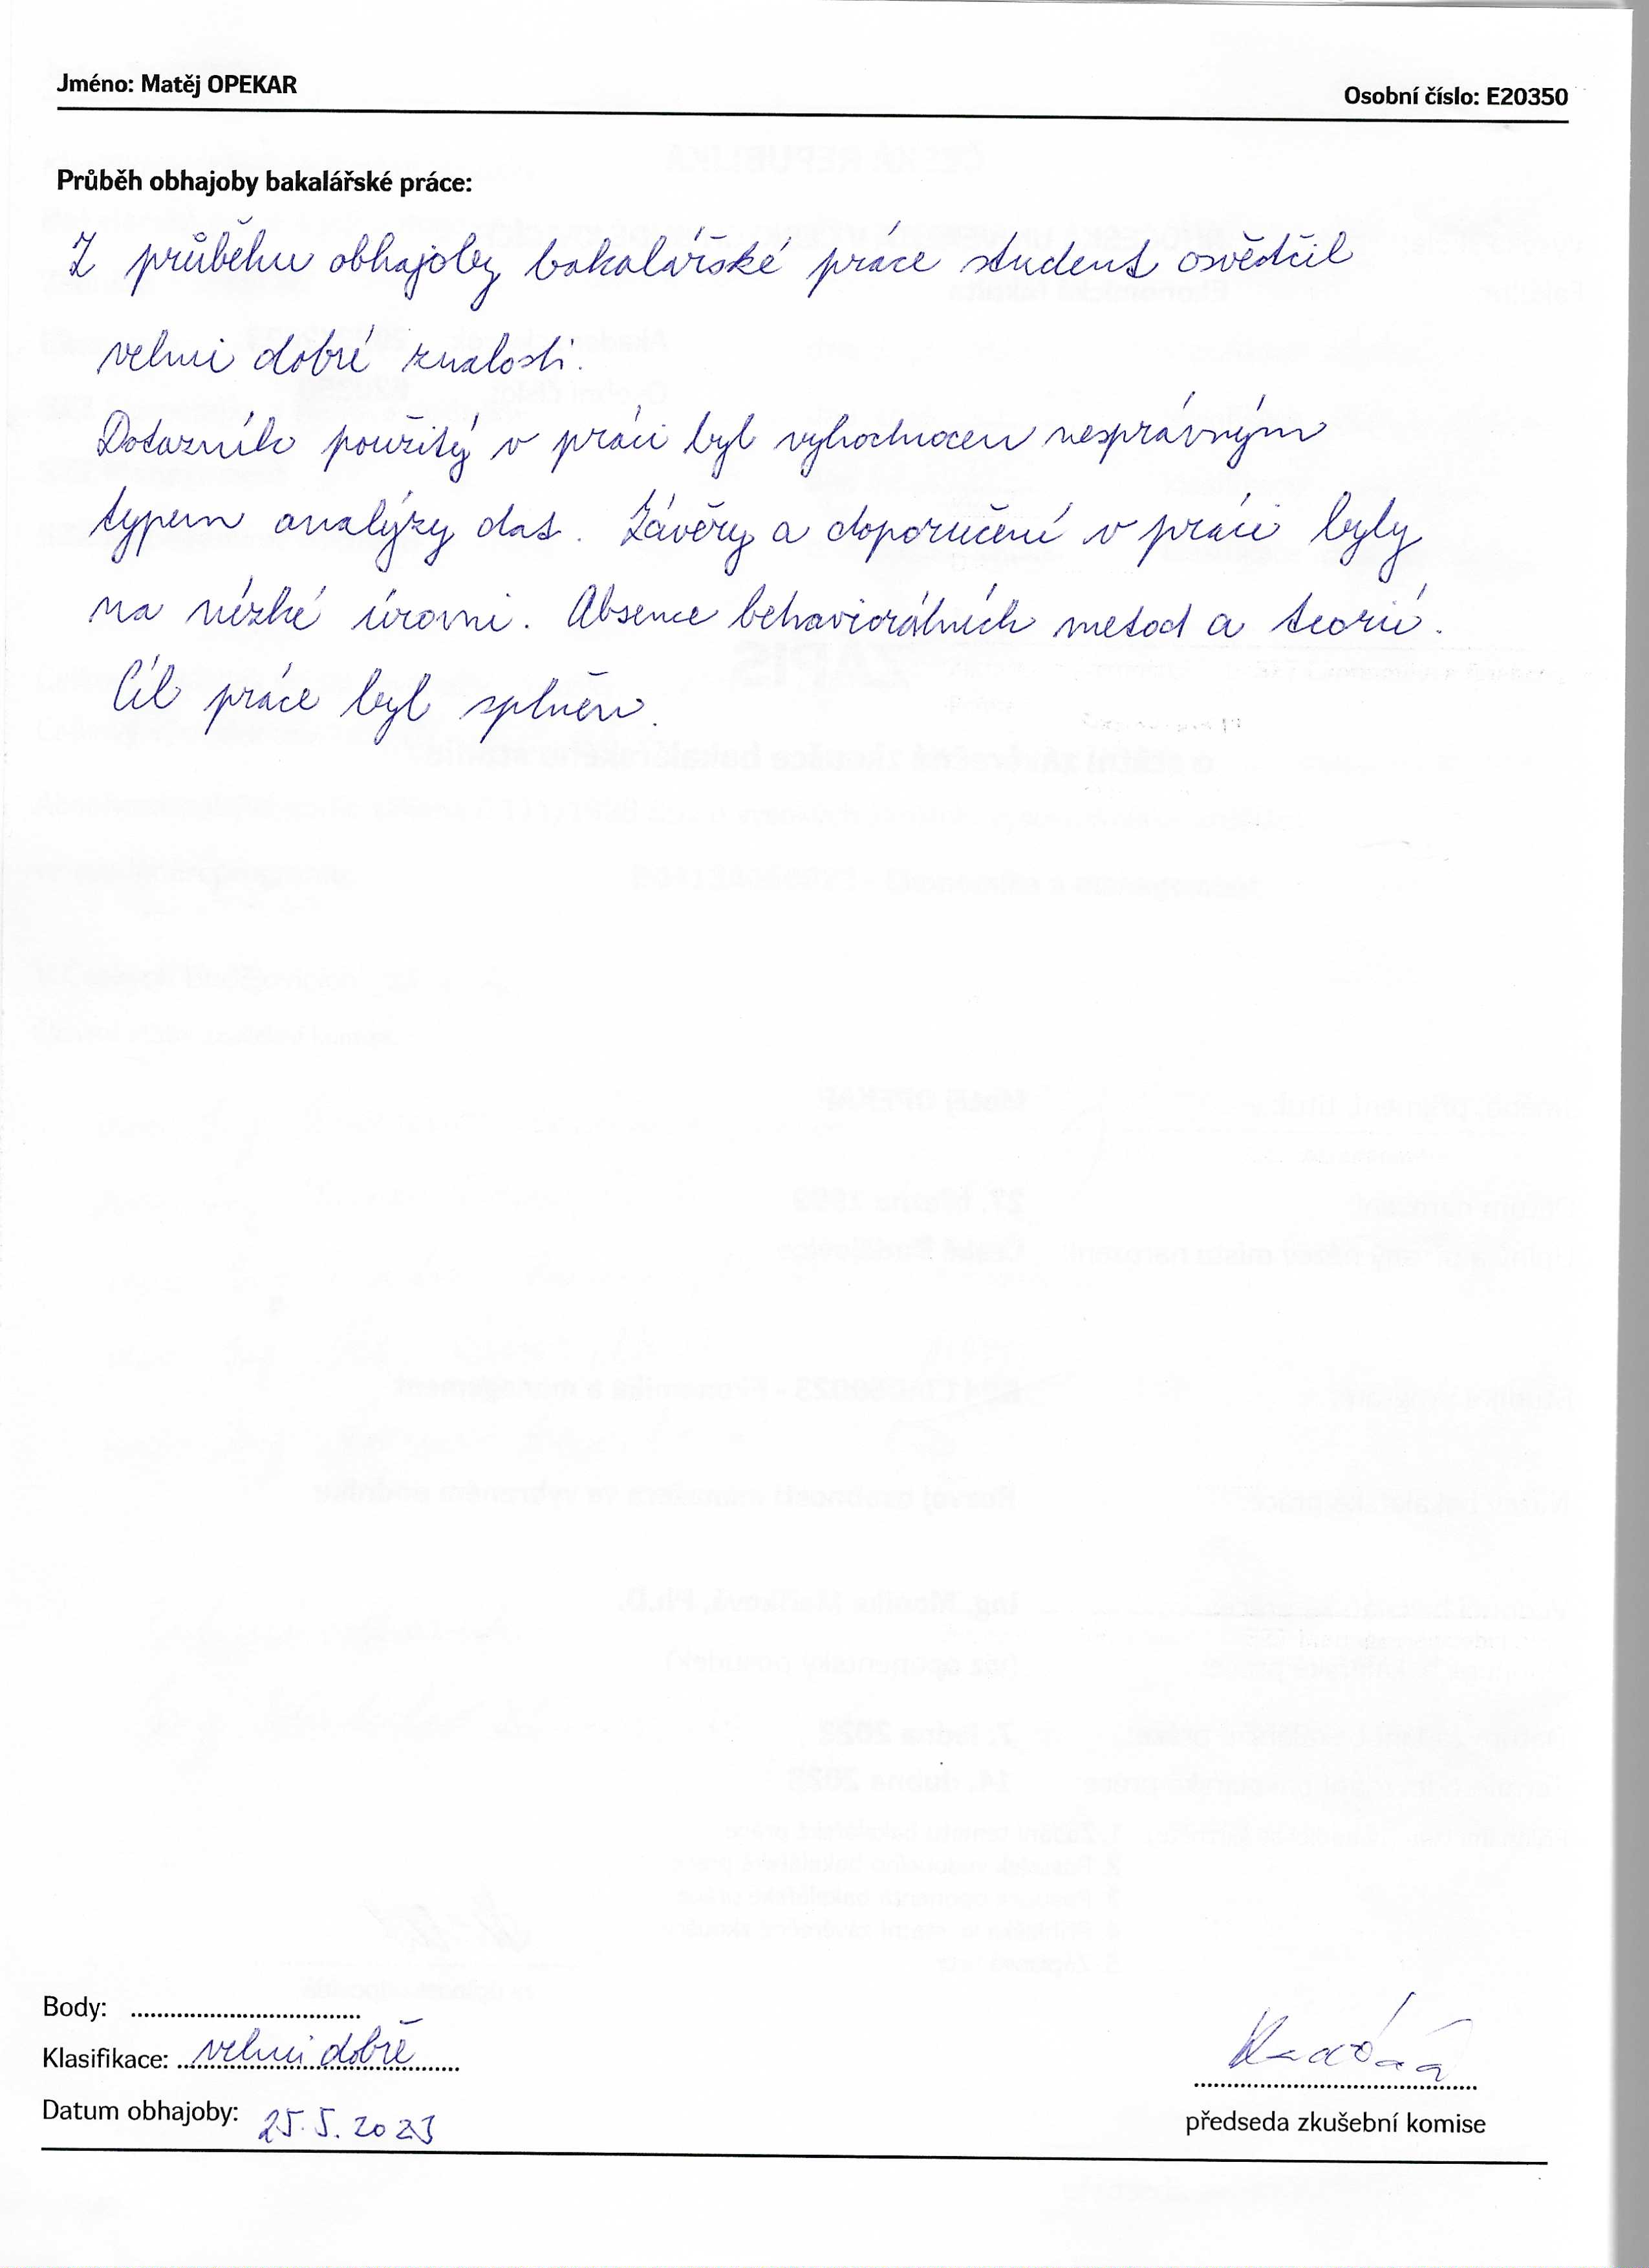 Jméno: Matěj OPEKAR
Osobní číslo: E20350
Průběh obhajoby bakalářské práce:
Z průběhu obhajoby bakalářské práce student osvědčil
velmi dobré znalosti.
Dotazník použitý v práci byl vyhodnocen nesprávným
typem analýzy dat. Závěry a doporučení v práci byly
na nízké úrovni. Absence behaviorálních metod a teorií.
Cíl práce byl splněn.
Body:
Klasifikace: velmi dobře
Datum obhajoby: 25.5.2023
předseda zkušební komise